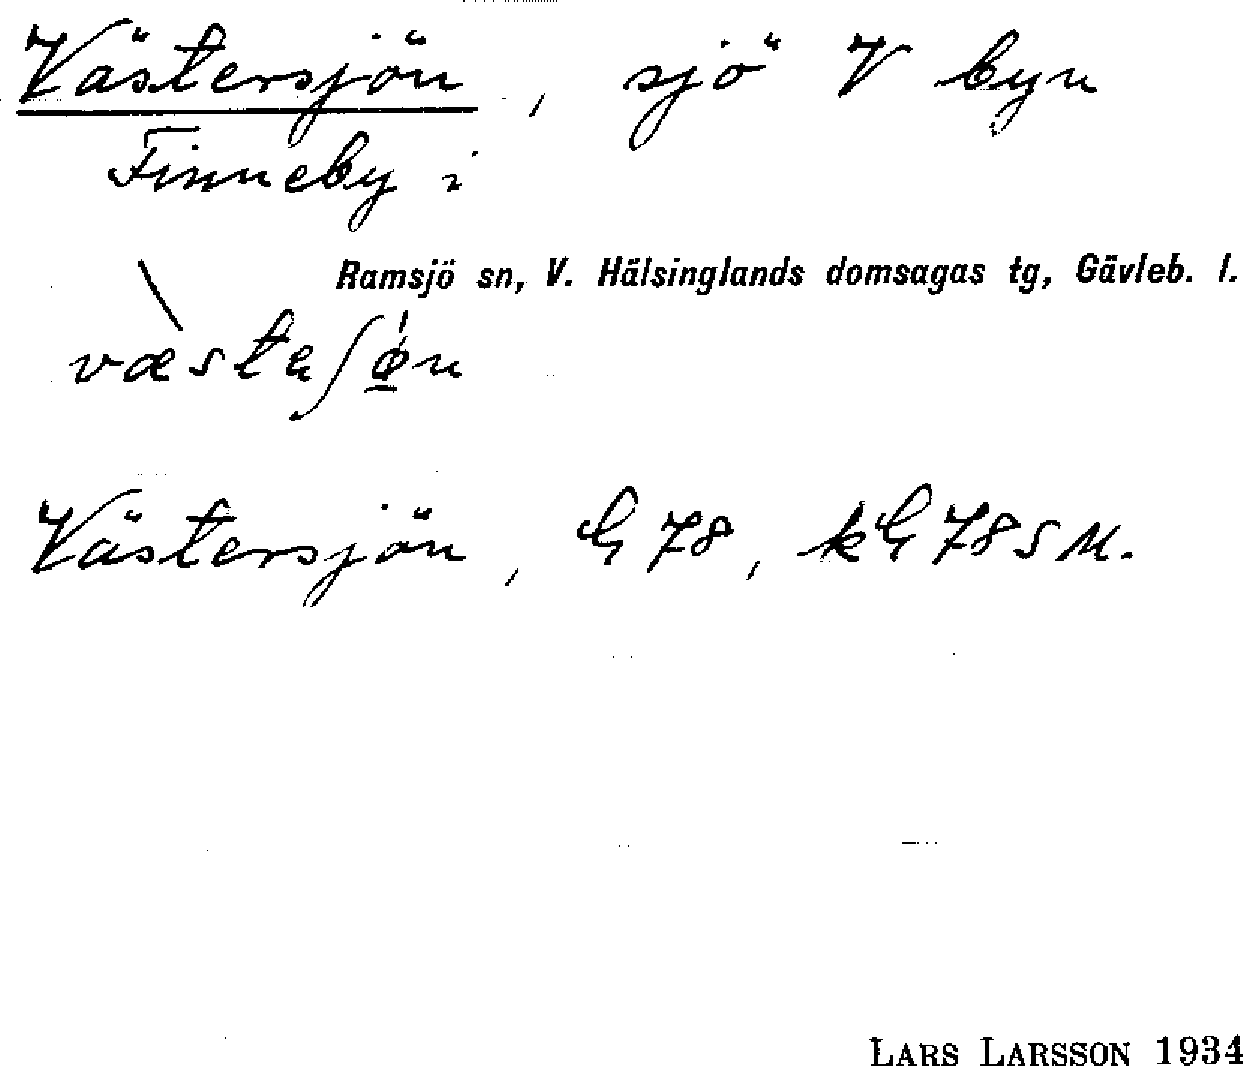 Västersjön, sjö V byn
Finneby i
Ramsjö sn, V. Hälsinglands domsagas tg, Gävleb. l.
Västersjön, G 78, kG 78 S M.
LARS LARSSON 1934